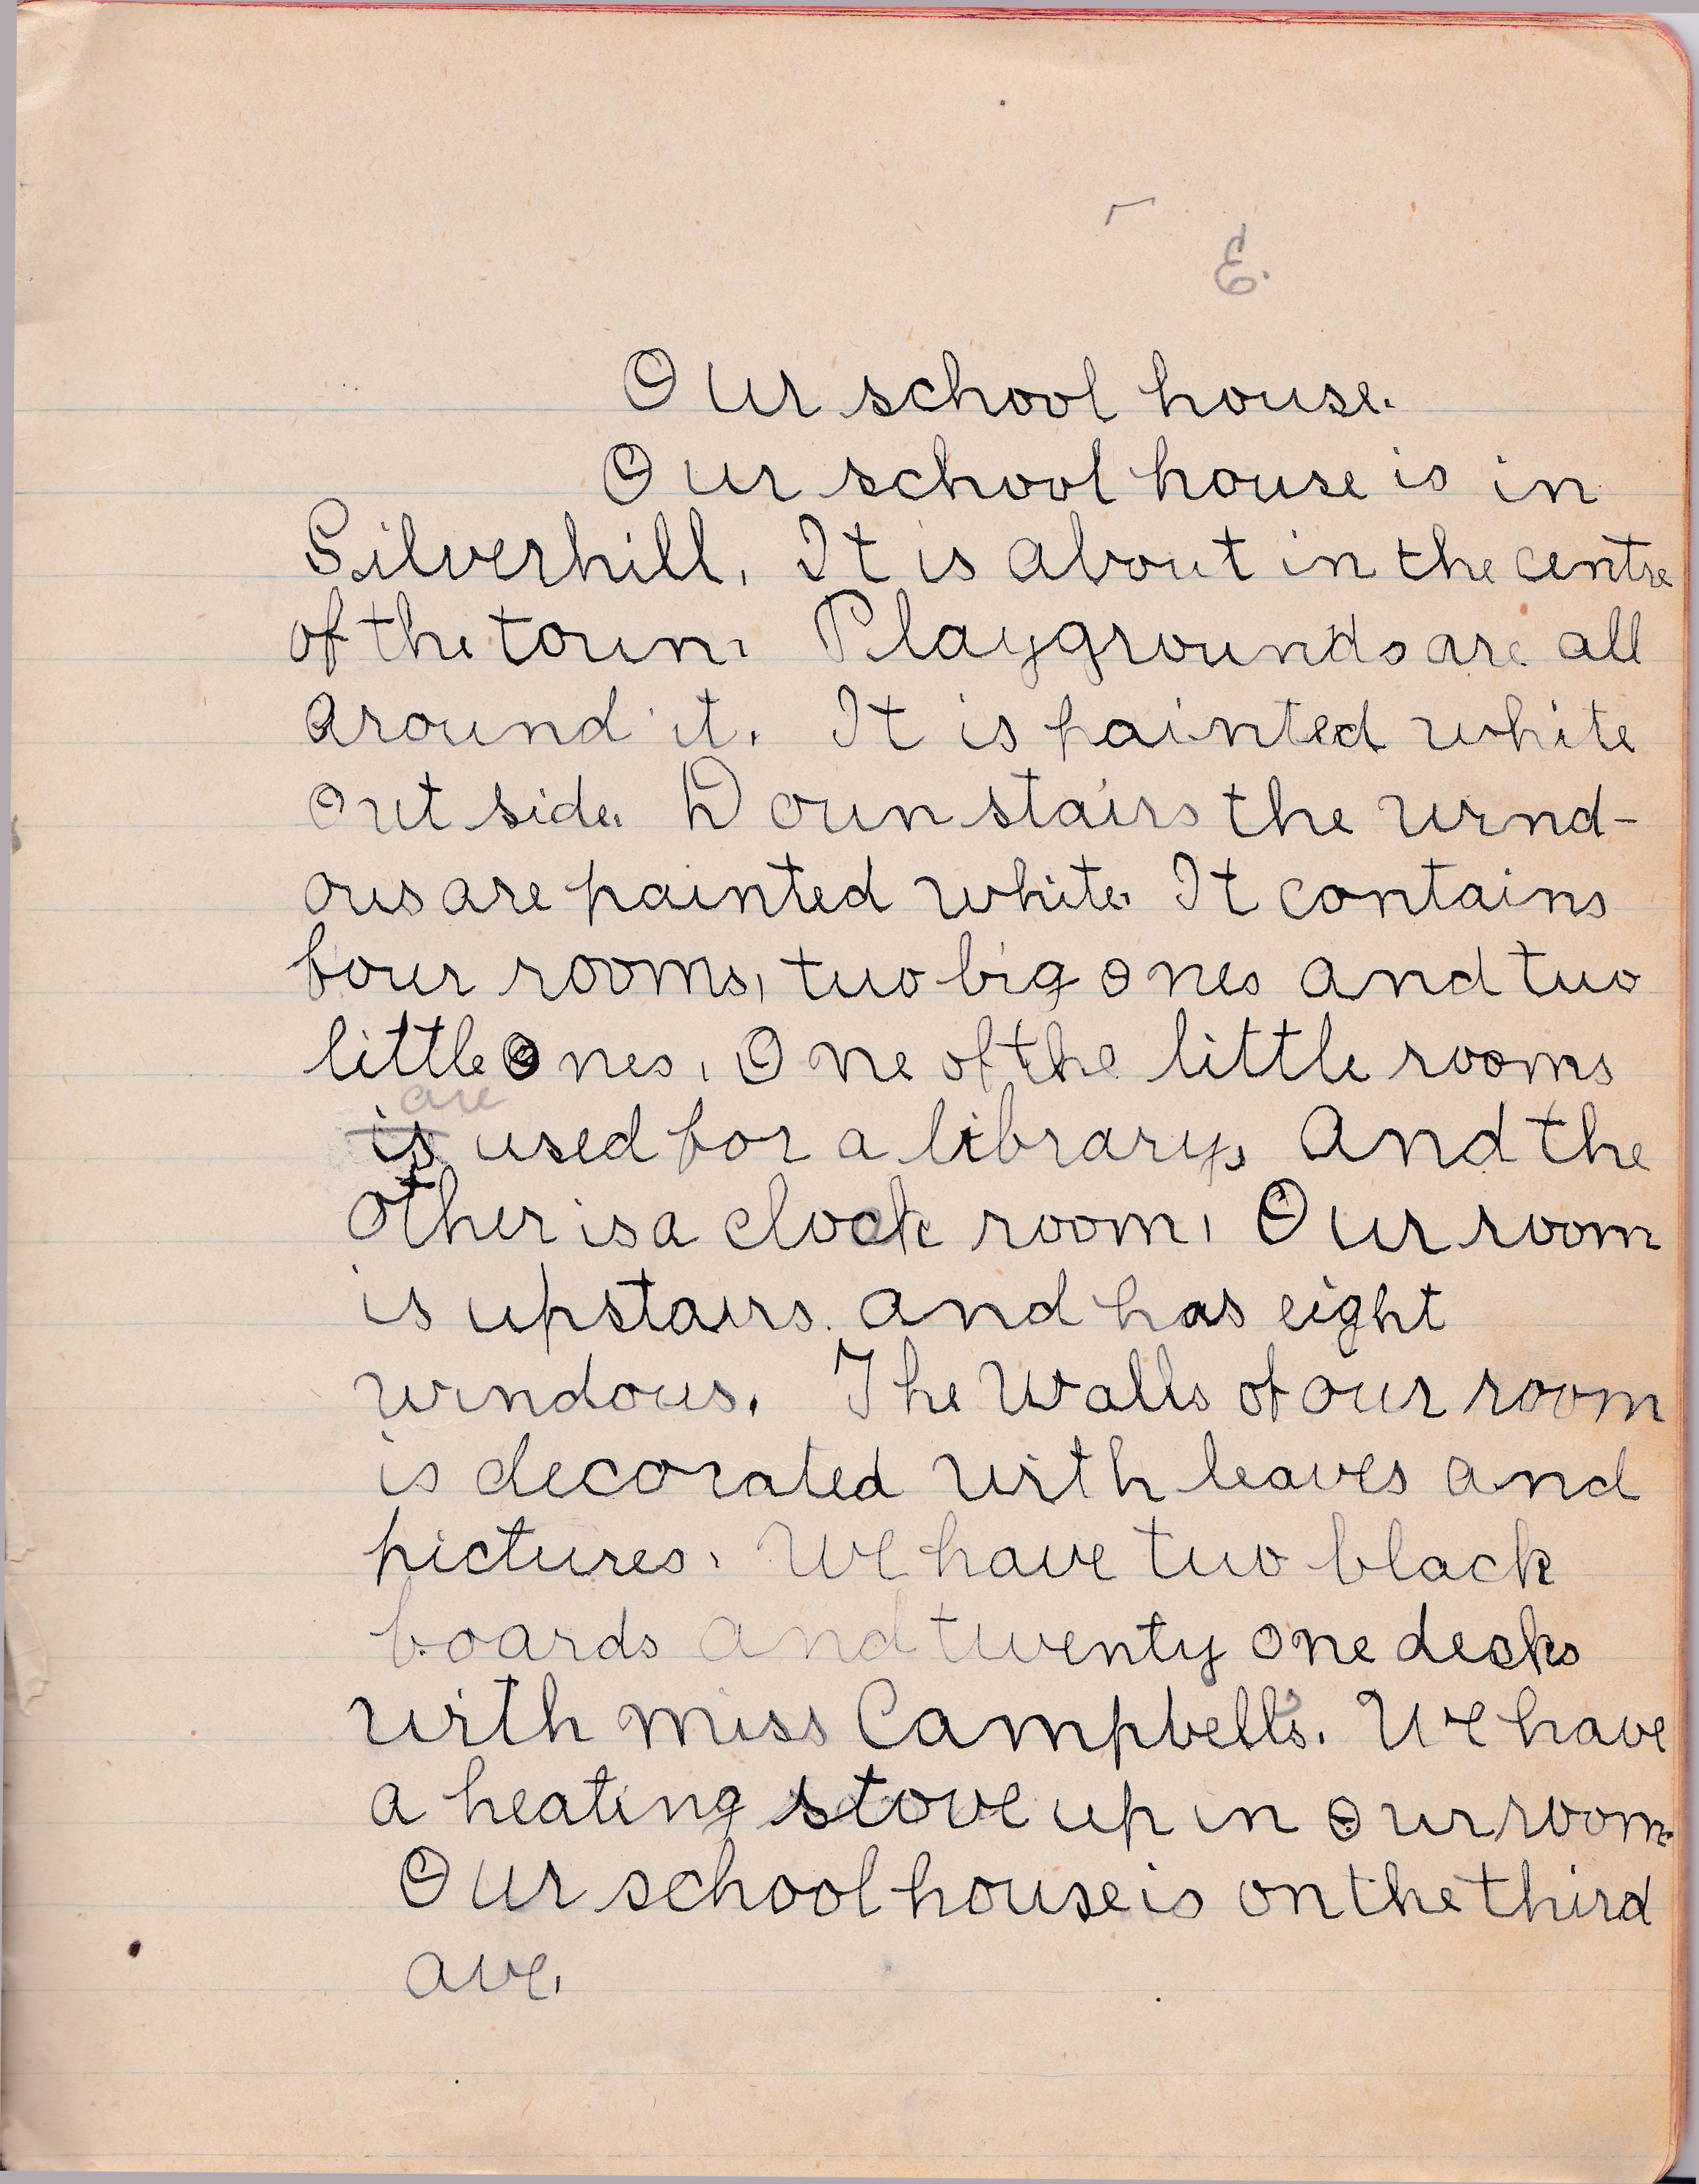 E.
Our school house.
Our school house is in
Silverhill. It is about in the centre
of the town. Playgrounds are all
around it. It is painted white
out side. Down stairs the wind-
ows are painted white. It contains
four rooms, two big ones and two
little ones. One of the little rooms
are
is used for a library, and the
other is a clock room. Our room
is upstairs. and has eight
windows. The walls of our room
is decorated with leaves and
pictures. We have two black
boards and twenty one desks
with miss Campbell's. We have
a heating stove up in our room.
Our school house is on the third
ave.